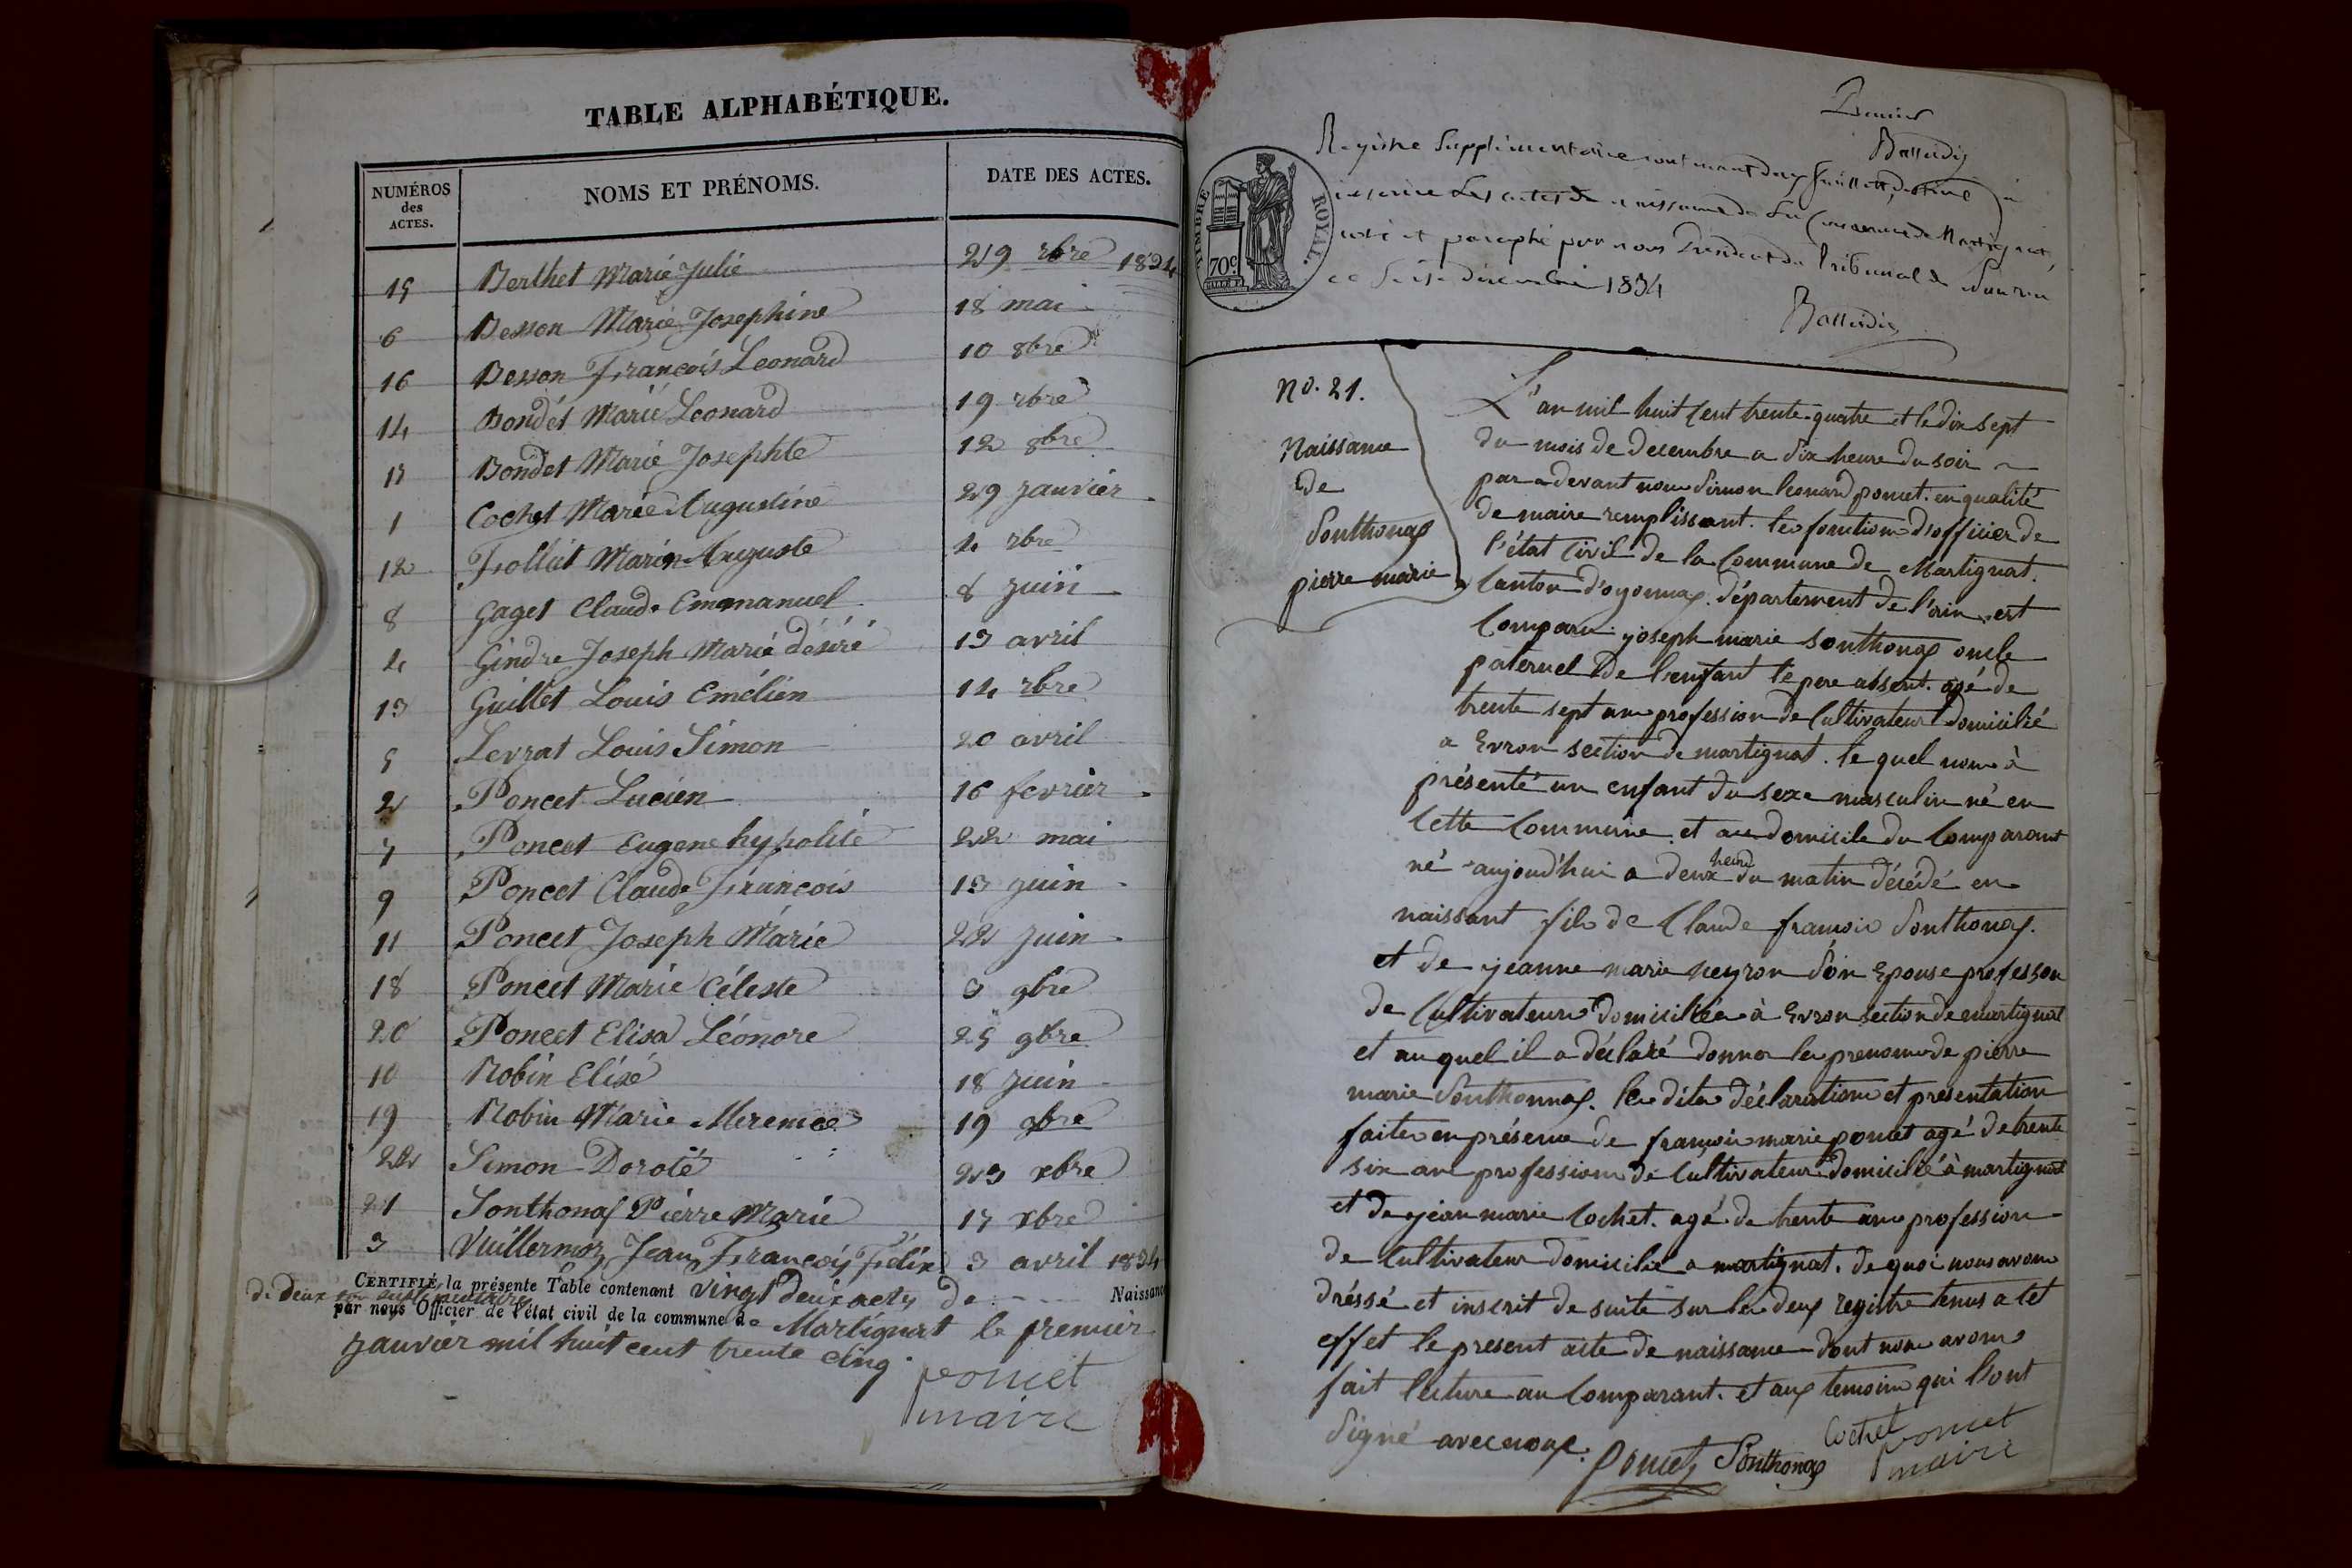 TABLE ALPHABÉTIQUE.
NUMÉROS des ACTES. NOMS ET PRÉNOMS. DATE DES ACTES.
15 Berthet Marie Julie 29 7bre 1834
6 Besson Marie Josephine 18 mai
16 Besson François Leonard 10 8bre
14 Bondet Marie Leonard 19 7bre
17 Bondet Marie Josephte 12 8bre
1 Cochet Marie Augustine 29 janvier
12 Follat Marie Auguste 4 7bre
8 Gaget Claude Emmanuel 8 juin
4 Gindre Joseph Marie désiré 13 avril
13 Guillet Louis Emélien 14 7bre
5 Levrat Louis Simon 20 avril
2 Poncet Lucien 16 fevrier
7 Poncet Eugene hypolite 22 mai
9 Poncet Claude François 13 juin
11 Poncet Joseph Marie 22 juin
18 Poncet Marie Céleste 3 9bre
20 Poncet Elisa Léonore 25 9bre
10 Robin Elisé 18 juin
19 Robin Marie 19 9bre
22 Simon Doroté 23 xbre
21 Sonthonax Pierre Marie 17 xbre
3 Vuillermoz Jean François Félix 3 avril 1834
CERTIFIÉ la présente Table contenant vingt deux actes de Naissance
de deux supplémentaires
par nous Officier de l'état civil de la commune de Martignat le premier
janvier mil huit cent trente cinq.
poncet
maire
TIMBRE ROYAL.
70c.
Registre supplémentaire contenant deux feuillets, destiné à
inscrire les actes de naissance de la Commune de Martignat,
coté et paraphé par nous Président du Tribunal de Nantua
ce seize décembre 1834
No. 21.
Naissance
de
Sonthonax
pierre marie
L'an mil huit cent trente-quatre et le dix sept
du mois de decembre a dix heure du soir
par devant nous Simon leonard poncet en qualité
de maire remplissant les fonctions d'officier de
l'état civil de la Commune de Martignat.
Canton d'oyonnax. département de l'ain. est
Comparu joseph marie sonthonax oncle
paternel de l'enfant le pere absent. agé de
trente sept ans profession de Cultivateur domicilié
a Evron section de martignat. le quel nous à
présenté un enfant du sexe masculin né en
cette Commune. et au domicile du Comparant
né aujourd'hui a deux heure du matin décédé en
naissant fils de Claude françois Sonthonax.
et de jeanne marie neyron son Epouse profession
de Cultivateurs domiciliée à Evron section de martignat
et au quel il a déclaré donner les prenoms de pierre
marie Sonthonnax. les dites déclaration et presentation
faites en présence de françois marie poncet agé de trente
six ans profession de Cultivateur domicilié à martignat
et de jean marie Cochet. agé de trente ans profession
de Cultivateur domicilié a martignat. de quoi nous avons
dréssé et inscrit de suite sur les deux registre tenus a cet
effet le present acte de naissance dont nous avons
fait lecture au Comparant. et aux temoins qui l'ont
Signé avec nous.
Cochet
poncet Sonthonax poncet
maire